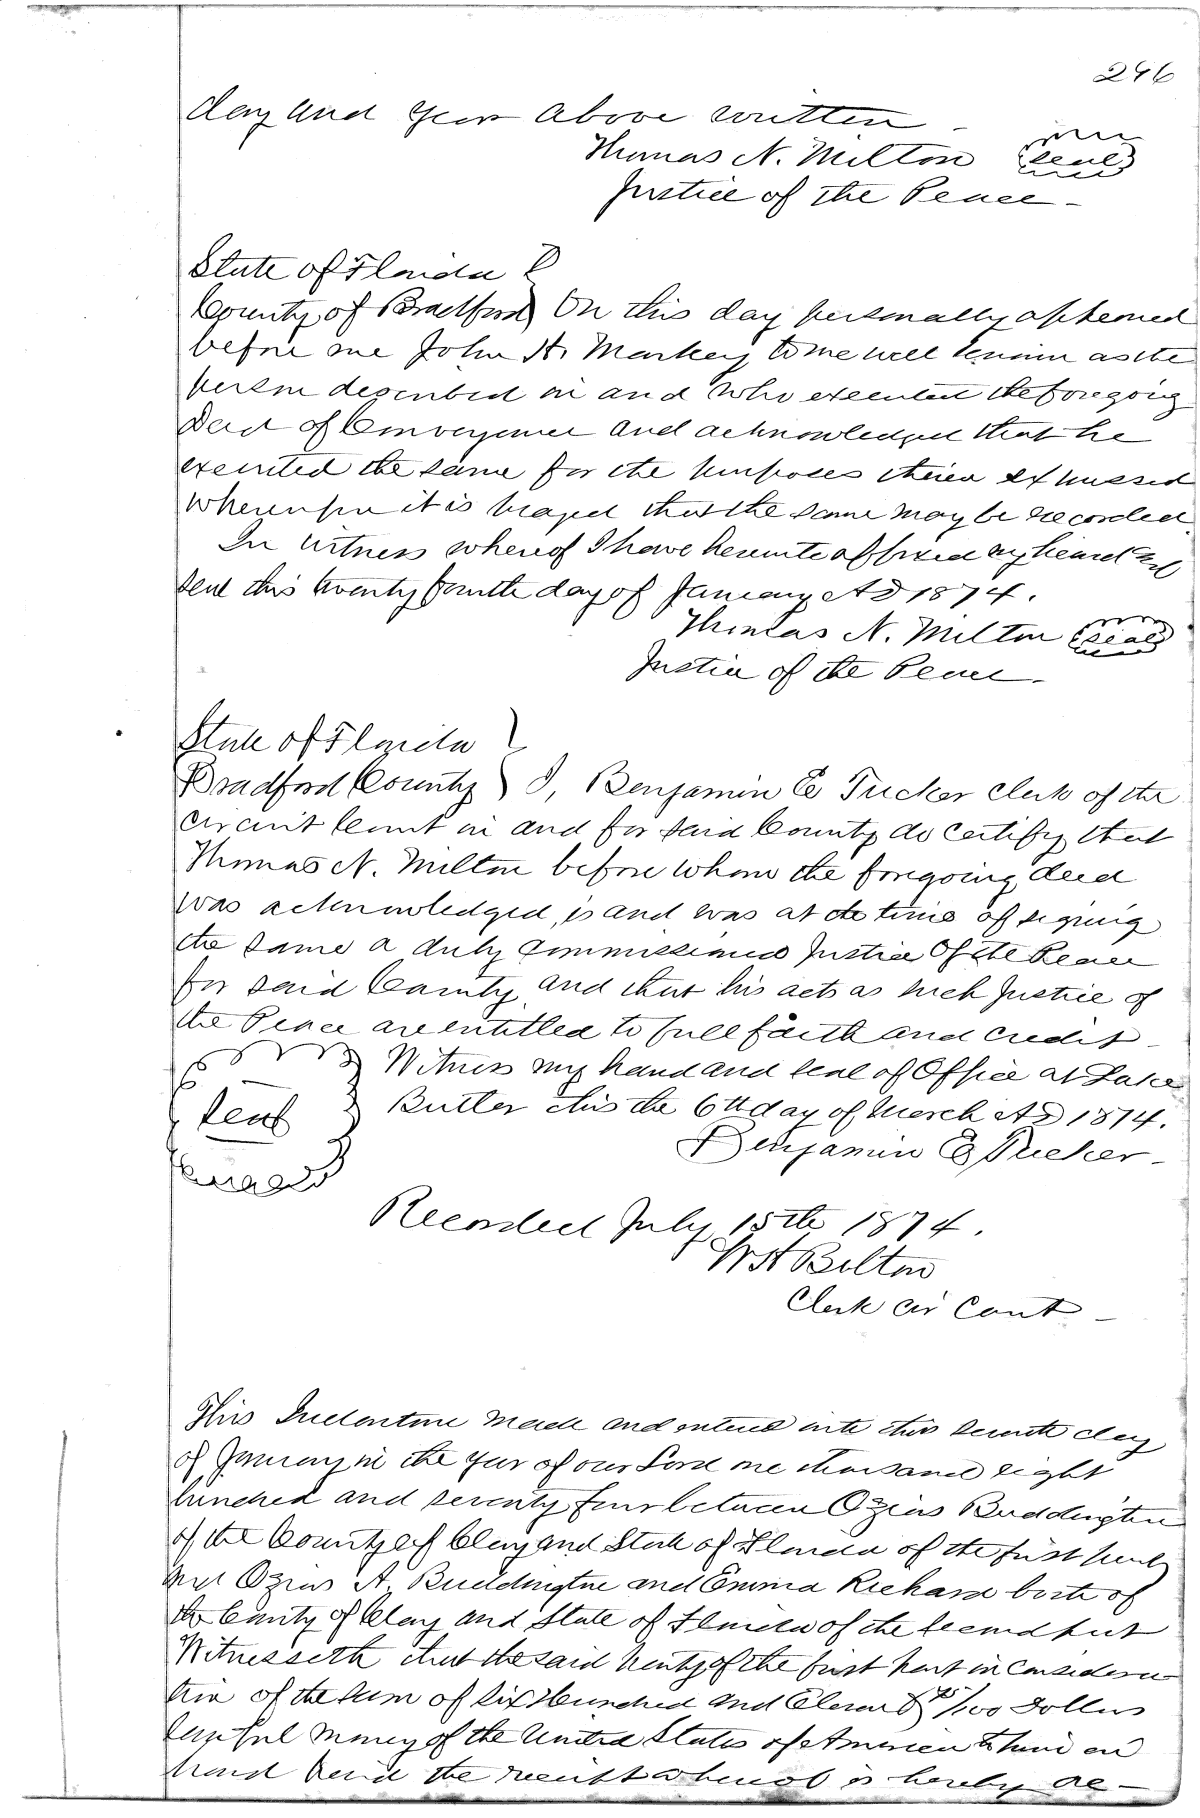 246
day and year above written -
Thomas N. Milton (seal)
Justice of the Peace -
State of Florida }
County of Bradford } On this day personally appeared
before me John H. Markey to me well known as the
person described in and who executed the foregoing
Deed of Conveyance and acknowledged that he
executed the same for the purposes therein expressed
whereupon it is prayed that the same may be recorded
In witness whereof I have hereunto affixed my hand and
seal this twenty fourth day of January AD 1874.
Thomas N. Milton (seal)
Justice of the Peace -
State of Florida }
Bradford County } I, Benjamin E Tucker clerk of the
circuit Court in and for said County do certify that
Thomas N. Milton before whom the foregoing deed
was acknowledged, is and was at the time of signing
the same a duly commissioned Justice of the Peace
for said County and that his acts as such Justice of
the Peace are entitled to full faith and credit -
Witness my hand and seal of Office at Lake
Seal
Butler this the 6th day of March AD 1874.
Benjamin E Tucker -
Recorded July 15th 1874.
W A Bolton
Clerk Cir Court -
This Indenture made and entered into this seventh day
of January in the year of our Lord one thousand eight
hundred and seventy four between Ozias Buddington
of the County of Clay and State of Florida of the first part
and Ozias A. Buddington and Emma Richard both of
the County of Clay and State of Florida of the second part
Witnesseth that the said party of the first part in considera
tion of the sum of Six Hundred and Eleven & /100 Dollars
lawful money of the United States of America to him in
hand paid the receipt whereof is hereby ac -